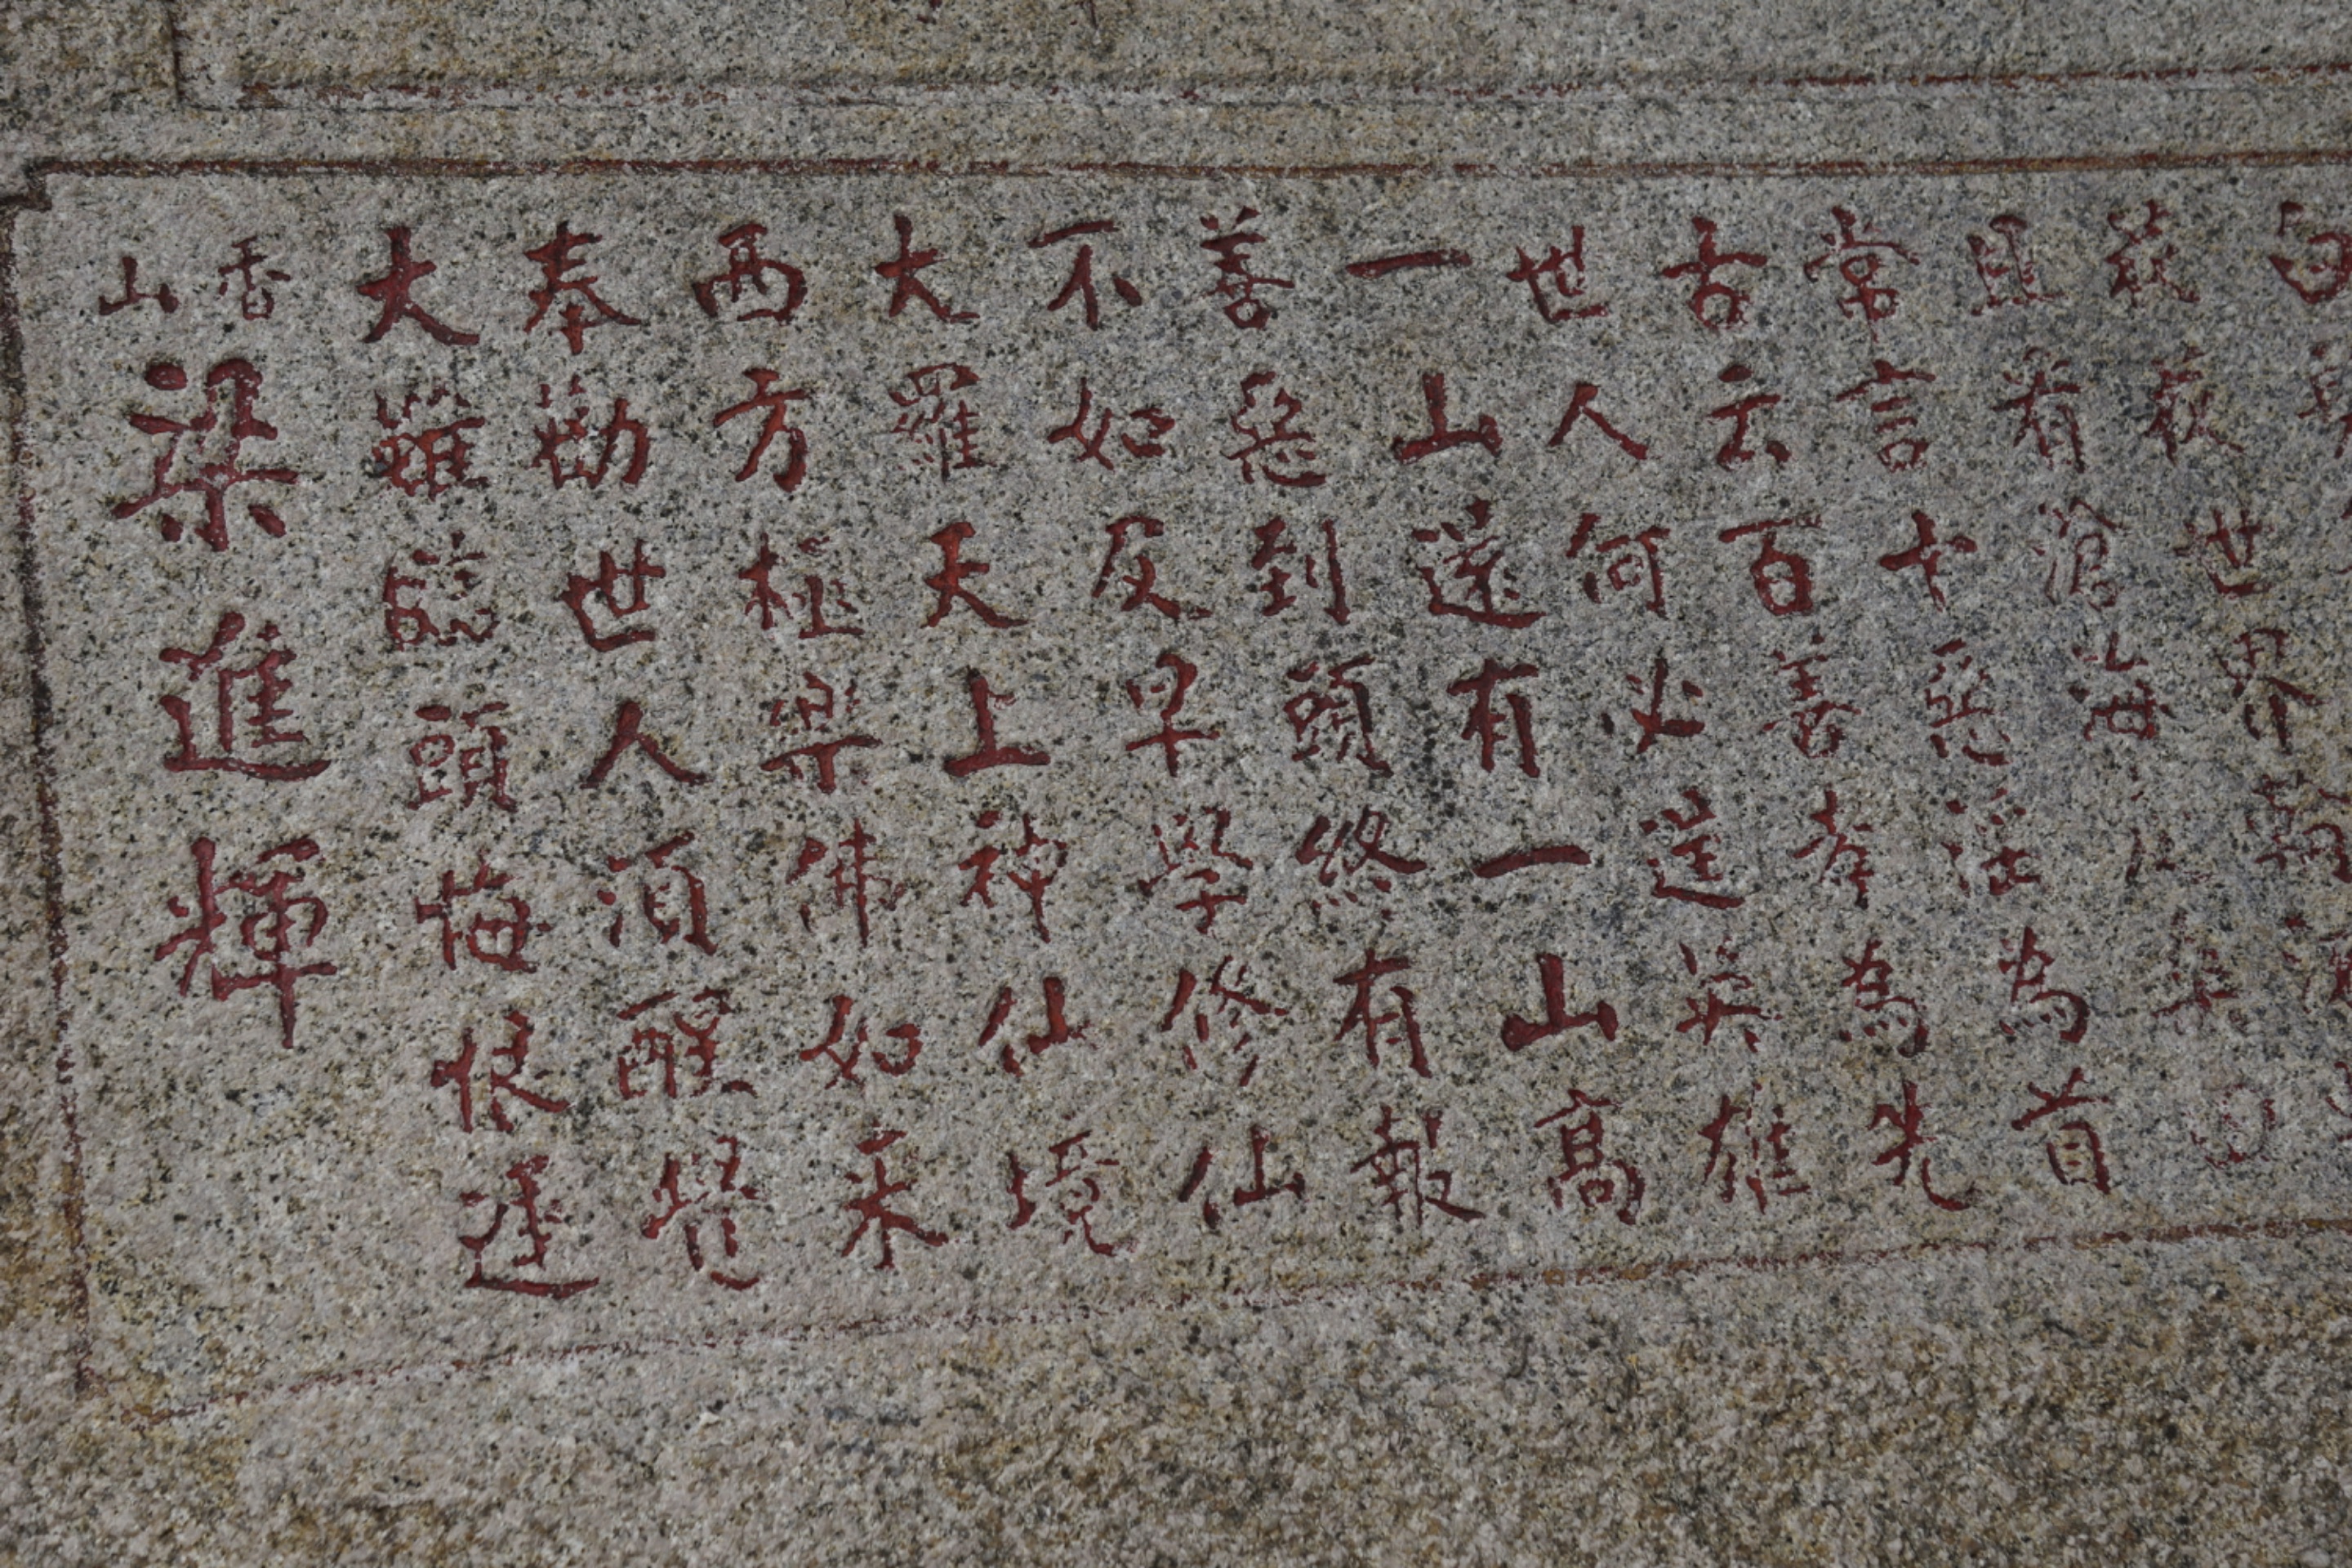 世界
且看滄海
常言十惡淫為首
古云百善孝為先
世人何必逞英雄
一山遠有一山高
善惡到頭終有報
不如及早學修仙
大羅天上神仙境
西方極樂佛如來
奉勸世人須醒覺
大難臨頭悔恨遲
香山
梁進輝